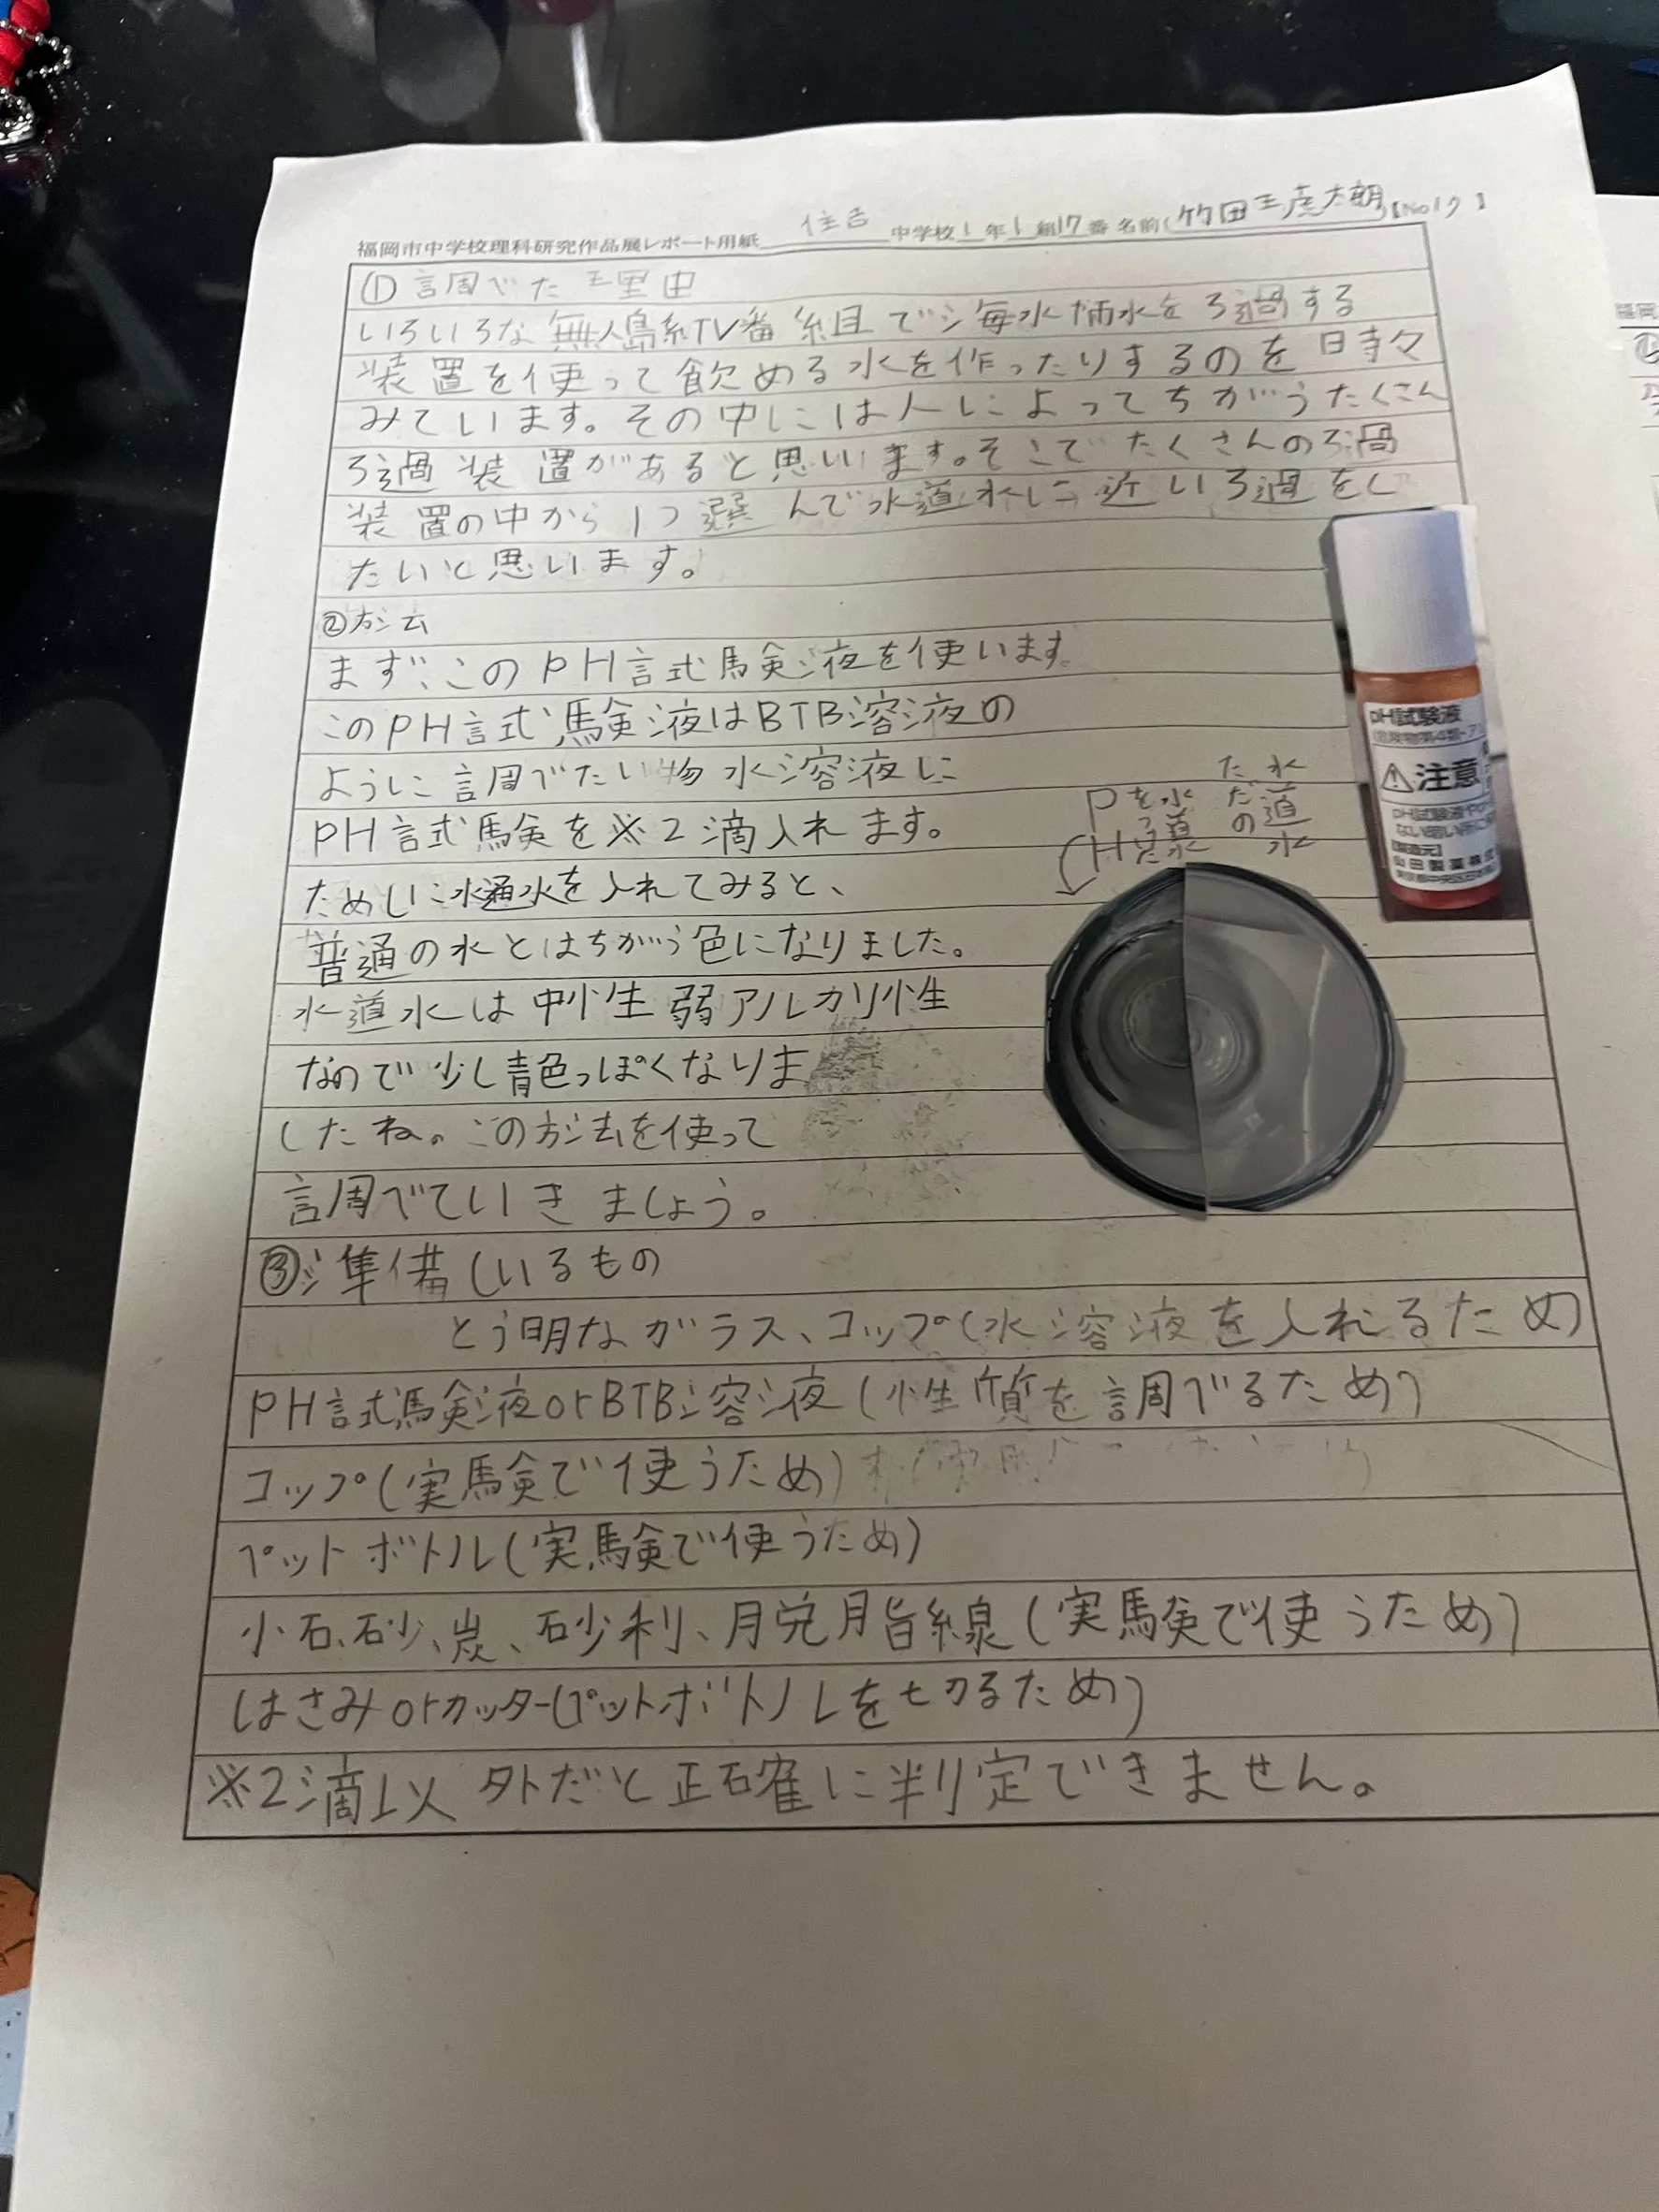 福岡市中学校理科研究作品展レポート用紙 住吉 中学校1年1組17番 名前(竹田 虎太朗)【No17】
①調べた理由
いろいろな無人島系TV番組で海水、雨水をろ過する
装置を使って飲める水を作ったりするのを時々
みています。その中には人によってちがうたくさん
ろ過装置があると思います。そこでたくさんのろ過
装置の中から1つ選んで水道水に近いろ過をし
たいと思います。
②方法
まず、このPH試験液を使います。
このPH試験液はBTB溶液の
ように調べたい物水溶液に
PH試験を※2滴入れます。
ためしに水道水を入れてみると、
普通の水とはちがう色になりました。
水道水は中性弱アルカリ性
なので少し青色っぽくなりま
したね。この方法を使って
調べていきましょう。
pH試験液
注意
PH
を
った
水道水
ただの
水道水
③準備しいるもの
とう明なガラス、コップ(水溶液を入れるため
PH試験液orBTB溶液(性質を調べるため)
コップ(実験で使うため)
ペットボトル(実験で使うため)
小石、砂、炭、砂利、脱脂線(実験で使うため)
はさみorカッター(ペットボトルを切るため)
※2滴以外だと正確に判定できません。
福岡